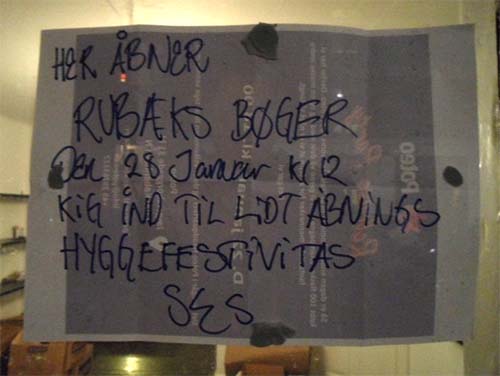 HER ÅBNER
RUBÆKS BØGER
Den 28 Januar Kl 12
KIG IND TIL LIDT ÅBNINGS
HYGGEFESTIVITAS
SES